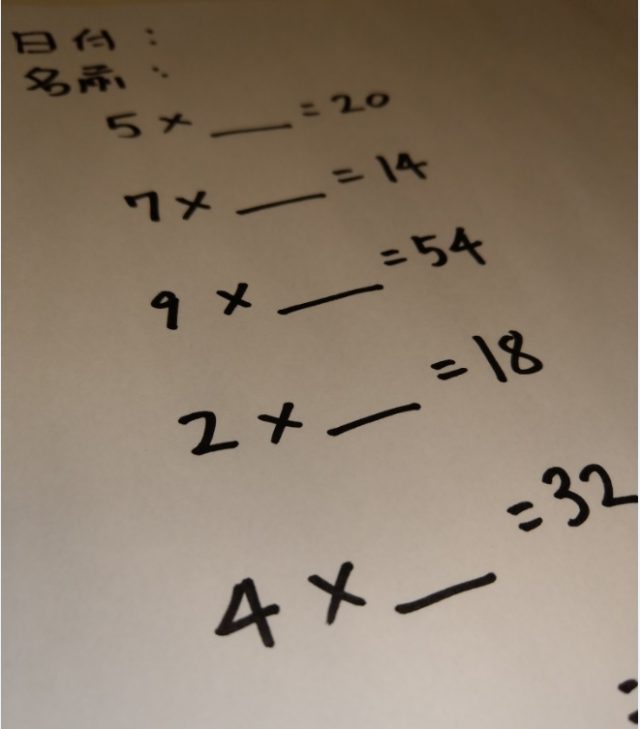 日付:
名前:
5 × __ = 20
7 × __ = 14
9 × __ = 54
2 × __ = 18
4 × __ = 32